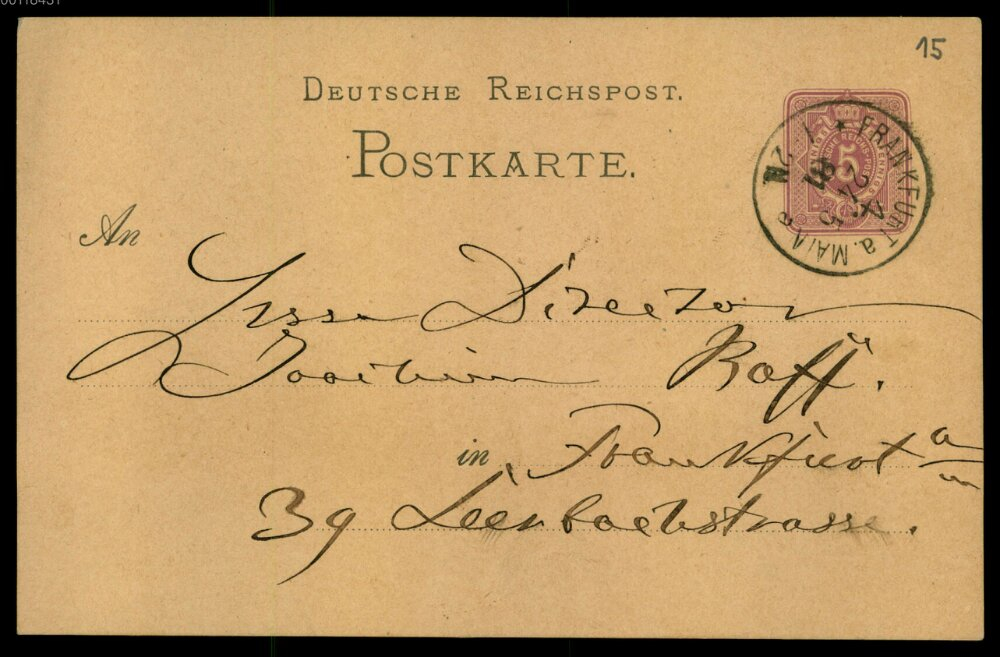 00118451
15
DEUTSCHE REICHSPOST.
POSTKARTE.
5
FRANKFURT a. MAIN a
24 5
81
1-2N
An
Herrn Director
Joachim Raff.
in Frankfurt a/m
39 Leerbachstrasse.